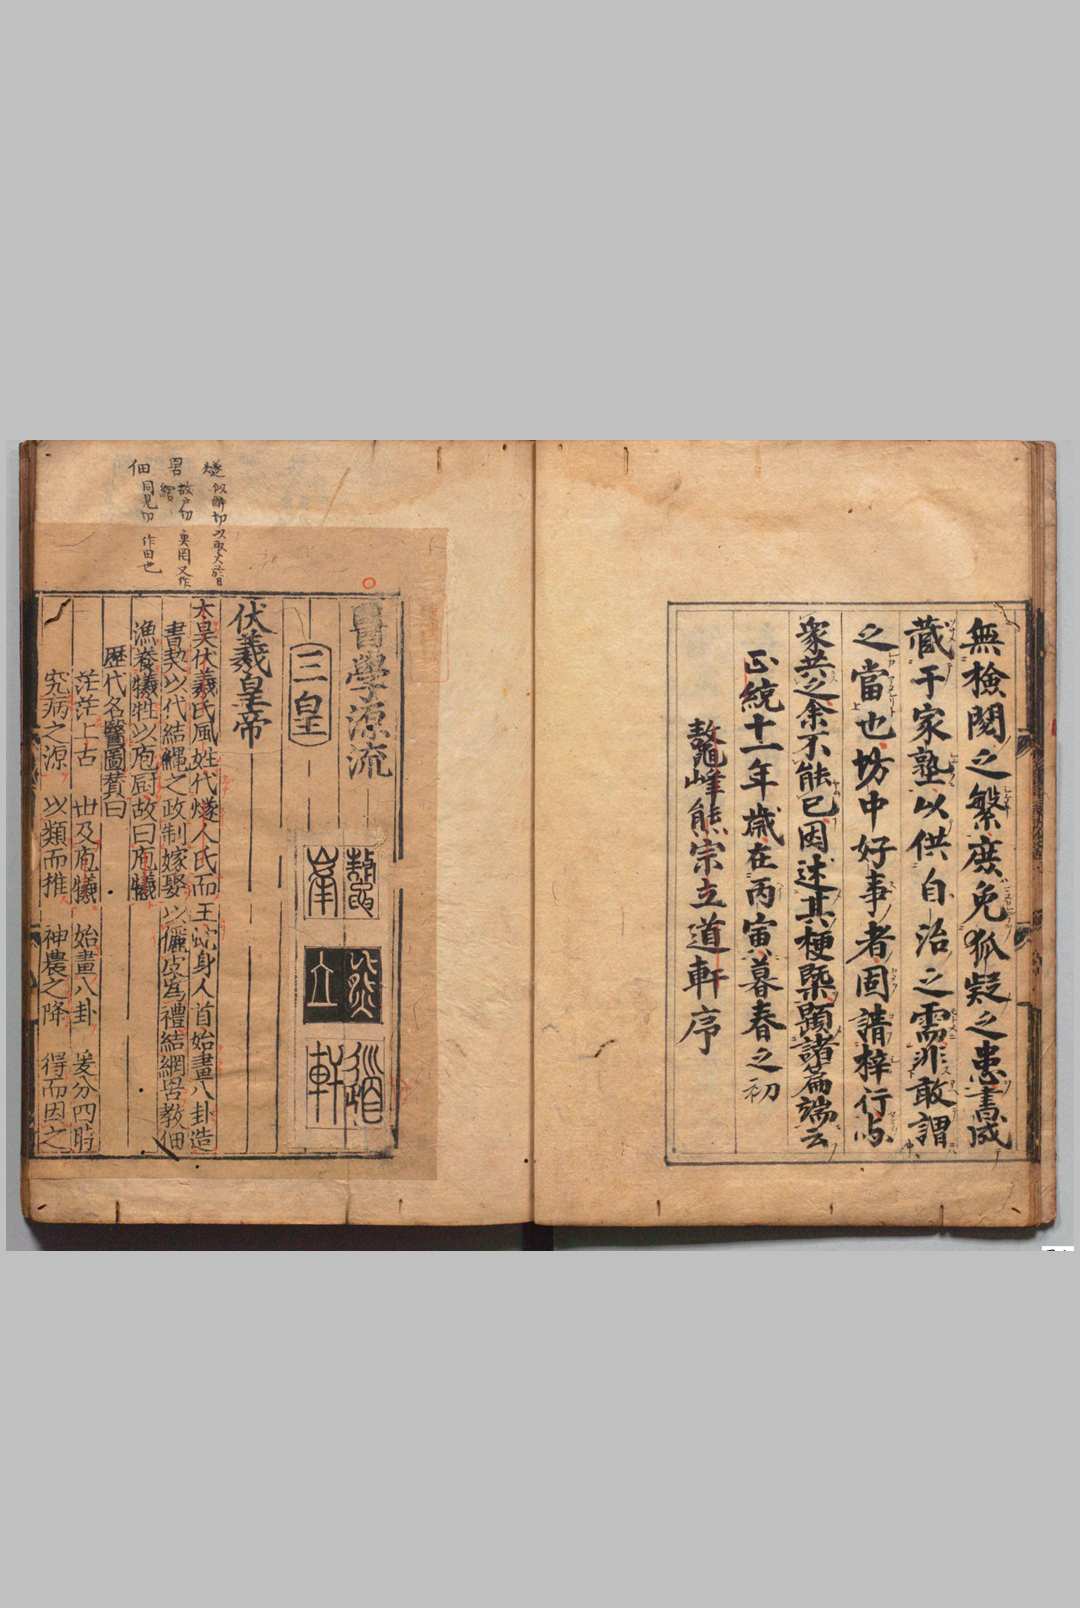 無檢閱之繁庶免狐疑之患書成
藏于家塾以供自治之需非敢謂
之當也坊中好事者固請梓行与
衆共之余不能已因述其梗槩顕諸篇端云
正統十一年歲在丙寅暮春之初
鼇峰熊宗立道軒序
醫學源流
鼇峯
熊立
道軒
三皇
伏羲皇帝
太昊伏羲氏風姓代燧人氏而王虵身人首始畫八卦造
書契以代結縄之政制嫁娶以儷皮爲禮結網罟教佃
漁養犧牲以庖厨故曰庖犧
歷代名醫圖賛曰
茫茫上古 丗及庖犧 始畫八卦 爰分四時
究病之源 以類而推 神農之降 得而因之
燧
罟
佃 同見切 作田也